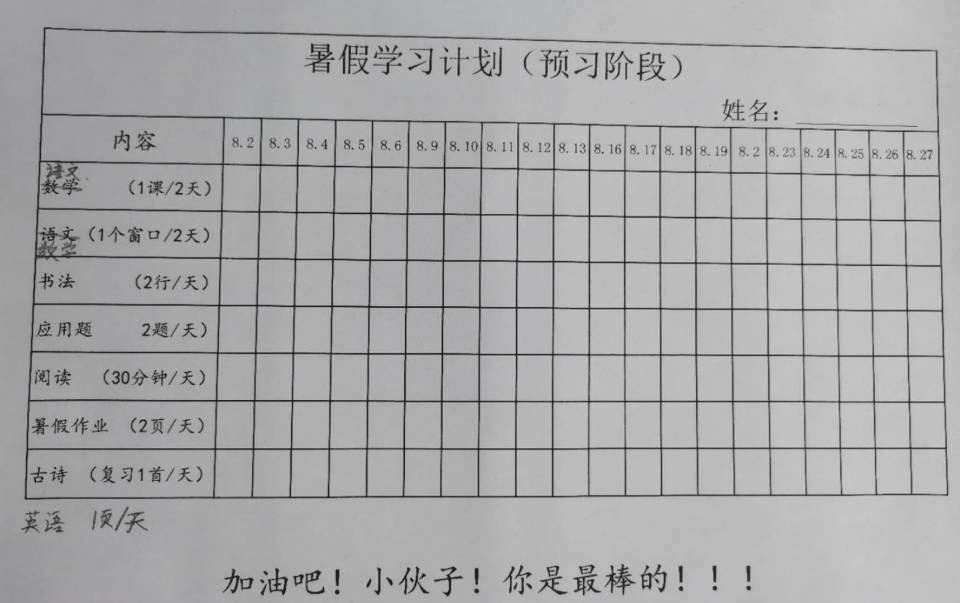 暑假学习计划（预习阶段）
姓名：
内容 8.2 8.3 8.4 8.5 8.6 8.9 8.10 8.11 8.12 8.13 8.16 8.17 8.18 8.19 8.2 8.23 8.24 8.25 8.26 8.27
语文
数学 （1课/2天）
语文（1个窗口/2天）
数学
书法 （2行/天）
应用题 2题/天）
阅读 （30分钟/天）
暑假作业 （2页/天）
古诗 （复习1首/天）
英语 1页/天
加油吧！小伙子！你是最棒的！！！